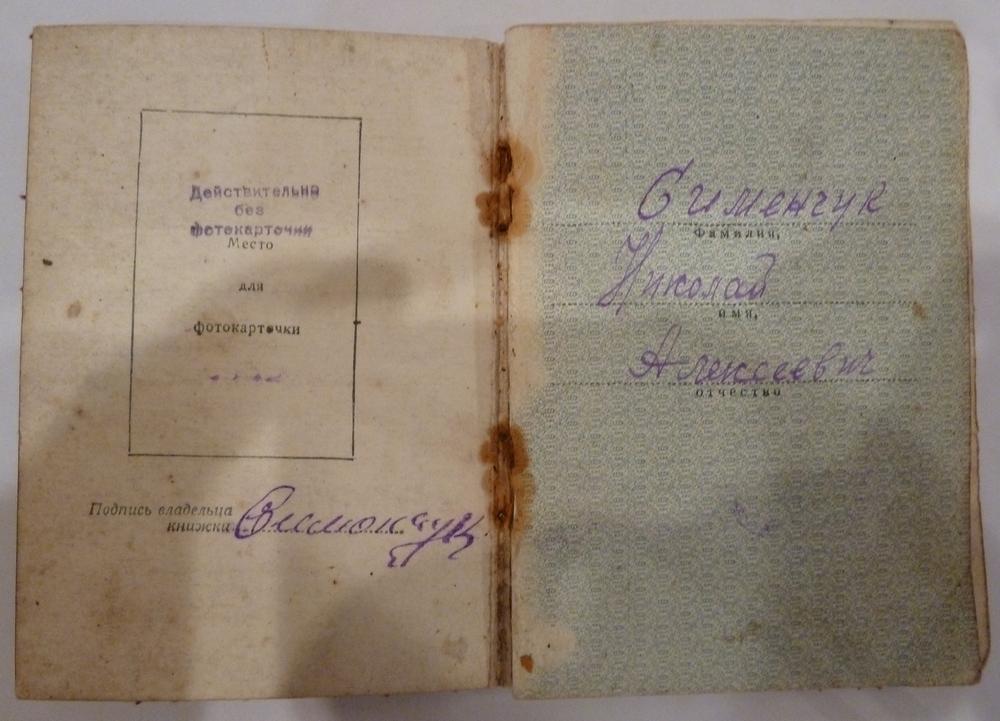 Действительно
без
фотокарточки
Место
для
фотокарточки
Подпись владельца
книжки
Сименчук
Фамилия,
Николай
имя,
Алексеевич
отчество